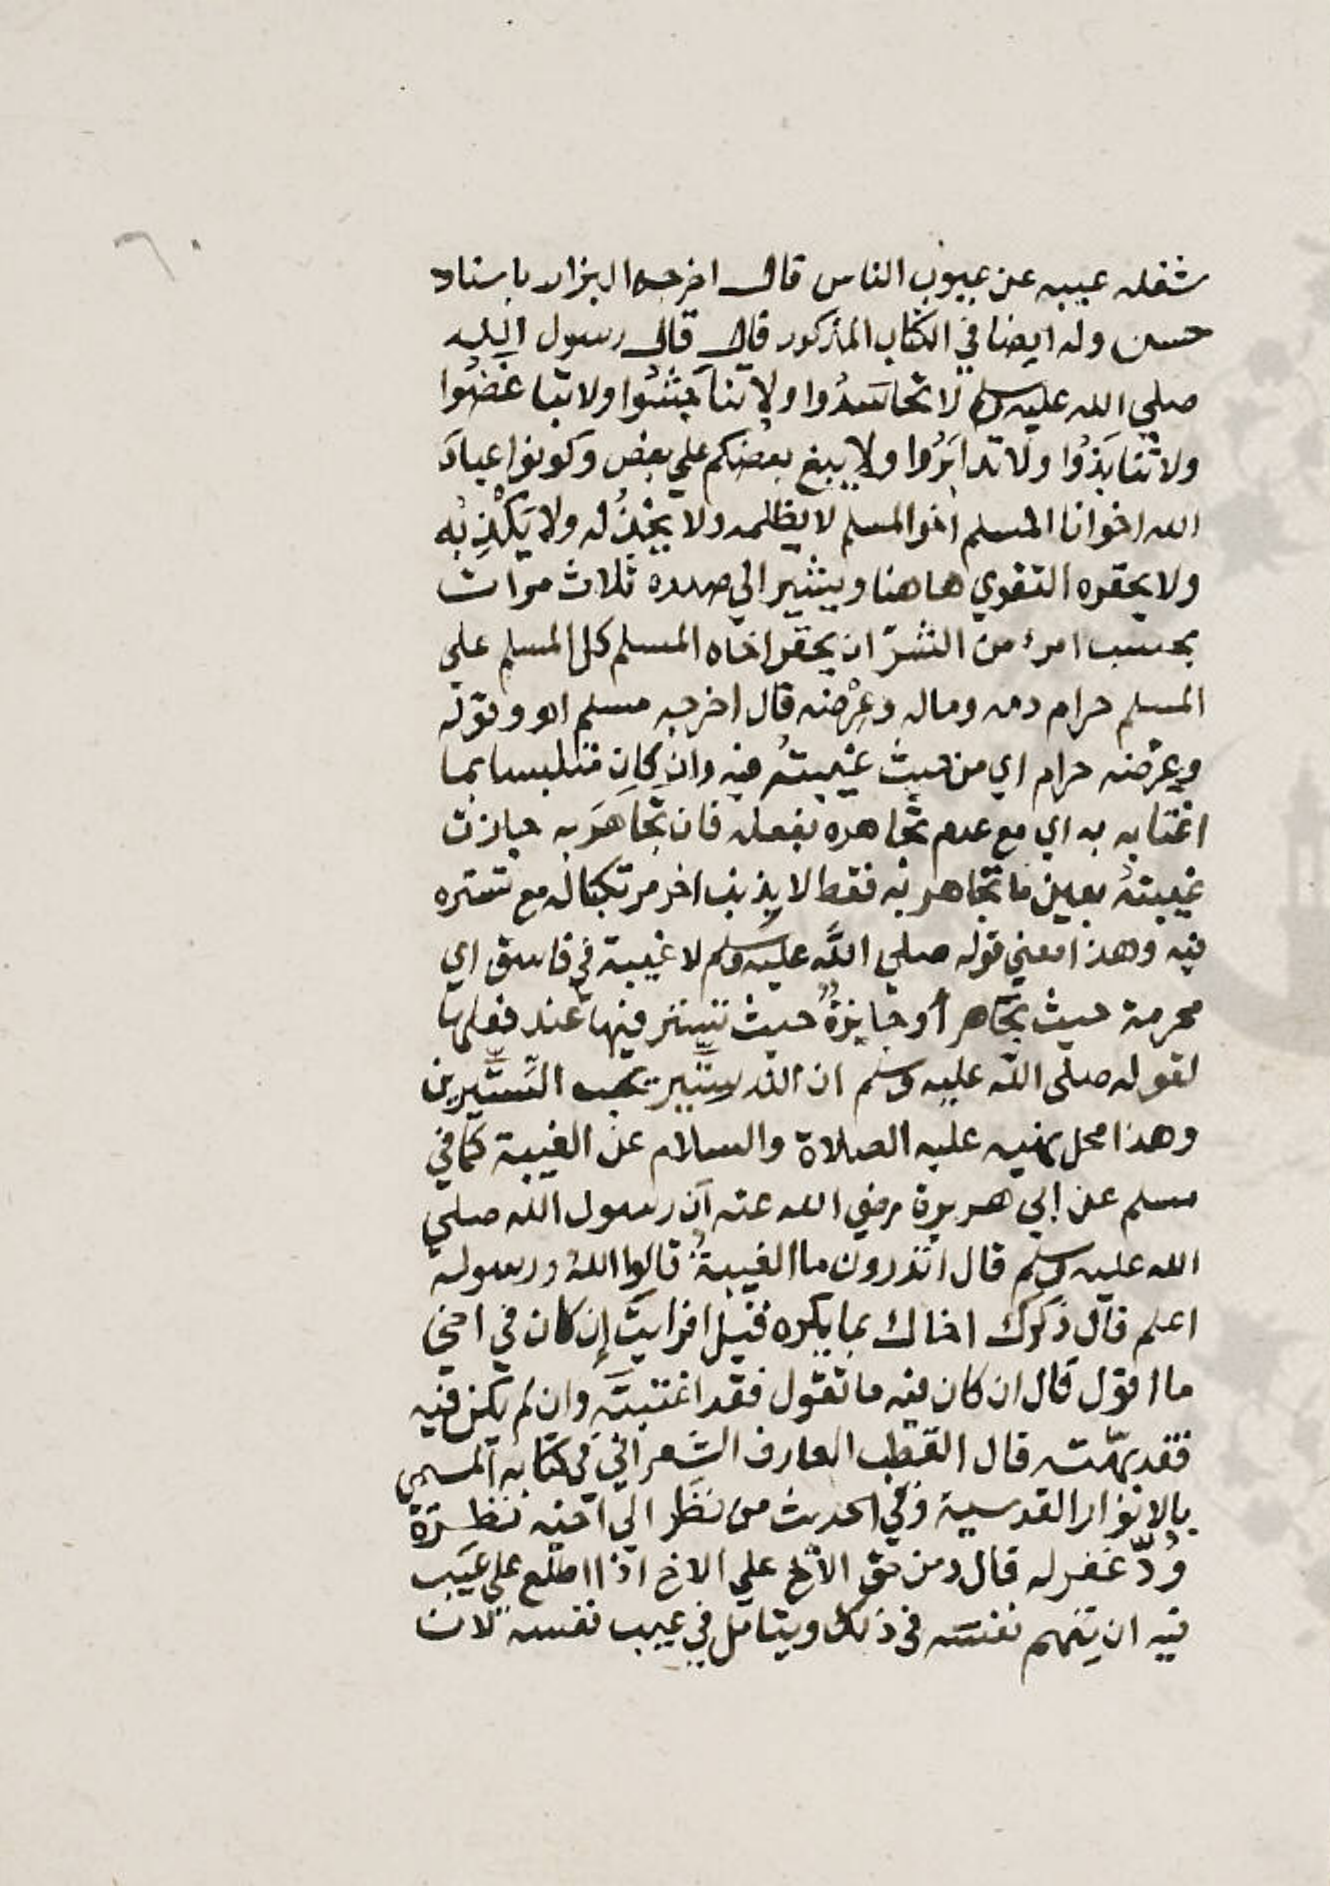 ٦٠
شغله عيبه عن عيوب الناس قال اخرجه البزار باسناد
حسن وله ايضا في الكتاب المذكور قال قال رسول الله
صلي الله عليه وسلم لا تحاسَدُوا ولا تناجَشُوا ولا تباغضُوا
ولا تنابَذُوا ولا تدابَرُوا ولا يبيع بعضكم علي بعض وكونوا عبادَ
الله اخوانا المسلم اخو المسلم لا يظلمه ولا يخْذُله ولا يَكْذِبُه
ولا يحقره التقوي هاهنا ويشير الي صدره ثلاث مرات
بحسْب امرئ من الشرّ ان يحقر اخاه المسلم كل المسلم علي
المسلم حرام دمه وماله وعِرْضه قال اخرجه مسلم اهـ وقوله
وعِرْضه حرام اي من حيث غيبتُه فيه وان كان متلبسا بما
اغتابه به اي مع عدم تجاهره بفعله فان تجاهَرَ به جازت
غيبتهُ بعين ما تجاهر به فقط لا بذنب اخر مرتكبا له مع تستره
فيه وهذا معني قوله صلي اللَّه عليه وسلم لا غيبة في فاسق اي
محرمة حيث تجاهر أو جايزةٌ حيث تستر فيها عند فعلها
لقوله صلي الله عليه وسلم ان الله سِتِّير يحب السَّتِّيرين
وهذا محل نهيه عليه الصلاة والسلام عن الغيبة كما في
مسلم عن ابي هريرة رضي الله عنه ان رسول الله صلي
الله عليه وسلم قال اتدرون ما الغيبةُ قالوا اللهُ ورسوله
اعلم قال ذكرك اخاك بما يكره فقيل افرايت إن كان في اخي
ما اقول قال ان كان فيه ما تقول فقد اغتبتَه وان لم يكن فيه
فقد بهتّه قال القطب العارف الشعراني في كتابه المسمي
بالانوار القدسية وفي الحديث من نظر الي اخيه نظرَة
وُدّ غفر له قال ومن حق الاخ علي الاخ اذا اطلع علي عيب
فيه ان يتهم نفسَه في ذلك ويتامل في عيب نفسه لان